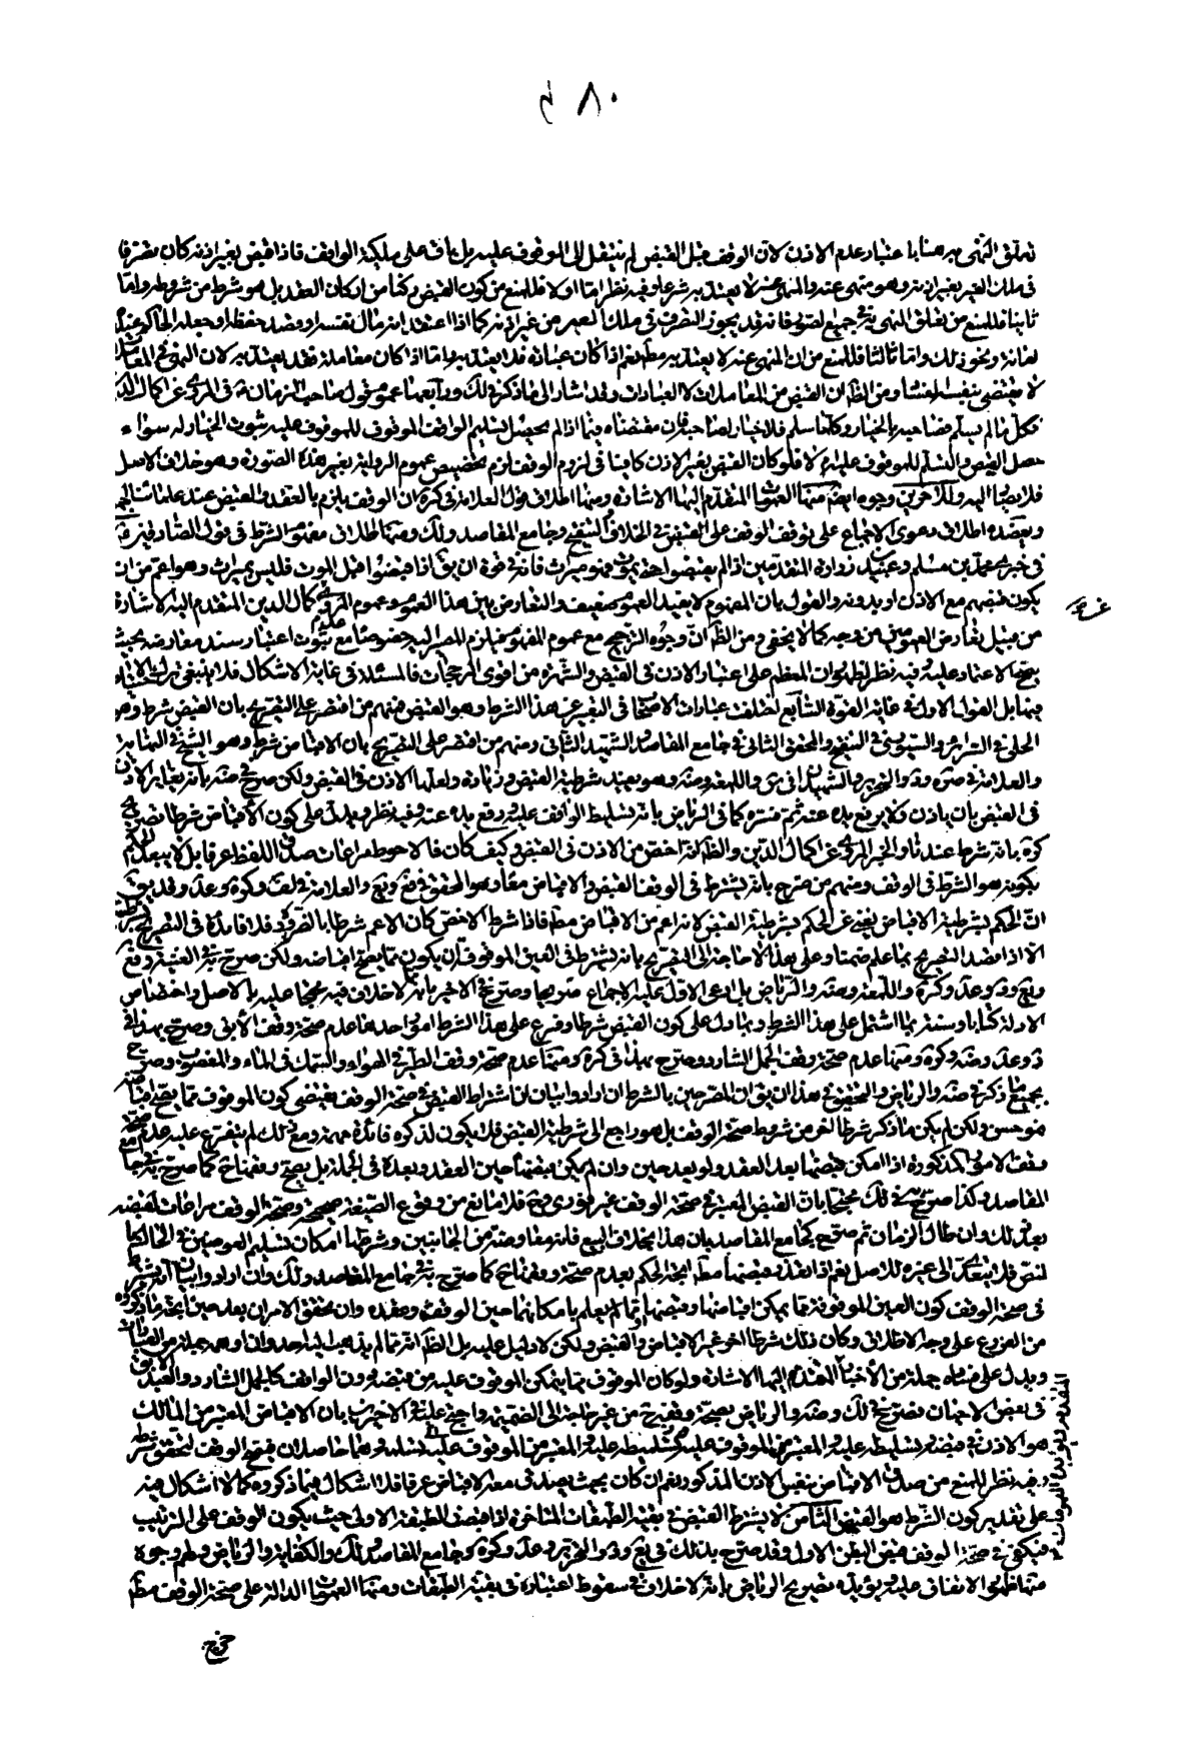 ٨٠
تعلق النهى به هنا باعتبار عدم الاذن لان الوقف قبل القبض لم ينتقل الى الموقوف عليه بل باق على ملكية الواقف فاذا قبض بغير اذنه كان تصرفا
فى ملك الغير بغير اذنه وهو منهى عنه والمنهى عنه لا يعتد به شرعا وفيه نظر اما اولا فللمنع من كون القبض ركنا من اركان العقد بل هو شرط من شروطه واما
ثانيا فللمنع من تعلق النهى به فى جميع الصور فانه قد يجوز التصرف فى ملك الغير من غير اذنه كما اذا اعتقد انه مال نفسه او قصد حفظه او جعله الحاكم عنده
امانة ونحو ذلك واما ثالثا فللمنع من ان المنهى عنه لا يعتد به مطلقا نعم اذا كان عبادة فلا يعتد به واما اذا كان معاملة فقد يعتد به لان النهى فى المعاملات
لا يقتضى بنفسه الفساد ومن الظ ان القبض من المعاملات لا العبادات وقد اشار الى ما ذكر فى لك ورابعها عموم قول صاحب الزمان ع فى المروى عن اكمال الدين
فكل ما لم يسلم فصاحبه بالخيار وكلما سلم فلا خيار لصاحبه فان مقتضاه فيما اذا لم يحصل تسليم الواقف الموقوف للموقوف عليه ثبوت الخيار له سواء
حصل القبض والتسلم للموقوف عليه ام لا فلو كان القبض بغير الاذن كافيا فى لزوم الوقف لزم تخصيص عموم الرواية بغير هذه الصورة وهو خلاف الاصل
فلا يصار اليه وللاخرين وجوه ايض منها العمومات المتقدم اليها الاشارة ومنها اطلاق قول العلامة فى كره ان الوقف يلزم بالعقد والقبض عند علمائنا اجمع
ويعضده اطلاق دعوى الاجماع على توقف الوقف على القبض فى الخلاف والتنقيح وجامع المقاصد ولك ومنها اطلاق مفهوم الشرط فى قول الصادقين ع
فى خبرى محمد بن مسلم وعبيد بن زرارة المتقدمين اذا لم يقبضوا حتى يموت فهو ميراث فانه فى قوة ان يق اذا قبضوا قبل الموت فليس بميراث وهو اعم من ان
يكون قبضهم مع الاذن او بدونه والقول بان المفهوم لا يفيد العموم ضعيف والتعارض بين هذا العموم وعموم المروى عن كمال الدين المتقدم اليه الاشارة
من قبيل تعارض العمومين من وجه كما لا يخفى ومن الظ ان وجوه الترجيح مع عموم المفهوم فيلزم المصير اليه خصوصا مع عدم ثبوت اعتبار سند معارضه بحيث
يصح الاعتماد عليه وفيه نظر لظهور ان المعظم على اعتبار الاذن فى القبض والشهرة من اقوى المرجحات فالمسئلة فى غاية الاشكال فلا ينبغى ترك الاحتياط
فيها بل القول الاول فى غاية القوة السابع اختلفت عبارات الاصحاب فى التعبير عن هذا الشرط وهو القبض فمنهم من اقتصر على التصريح بان القبض شرط وهو
الحلى فى السرائر والسيورى فى التنقيح والمحقق الثانى فى جامع المقاصد والشهيد الثانى ومنهم من اقتصر على التصريح بان الاقباض شرط وهو الشيخ فى النهاية
والعلامة فى صره ود والتحرير والشهيدان فى س واللمعة وضه وهو يفيد شرطية القبض وزيادة ولعلها الاذن فى القبض ولكن صرح فى ضه بانه يغاير الاذن
فى القبض بان ياذن ولا يرفع يده عنه ثم فسره كما فى الرياض بانه تسليط الواقف عليه ورفع يده عنه وفيه نظر ويدل على كون الاقباض شرطا تصريح
كره بانه شرط عندنا والخبر المروى عن اكمال الدين والظ انه اخص من الاذن فى القبض وكيف كان فالاحوط مراعات صدق اللفظ عرفا بل لا يبعد الحكم
بكونه هو الشرط فى الوقف ومنهم من صرح بانه يشترط فى الوقف القبض والاقباض معا وهو المحقق فى فع ويع والعلامة فى لف وكره وعد وقد يق
ان الحكم بشرطية الاقباض يغنى عن الحكم بشرطية القبض لانه اعم من الاقباض مط فاذا شرط الاخص كان الاعم شرطا بالضرورة فلا فائدة فى التصريح بشرطيته
الا اذا قصد التصريح بما علم ضمنا وعلى هذا لا حاجة الى التصريح بانه يشترط فى العين الموقوفة ان يكون مما يصح اقباضه ولكن صرح به فى الغنية وفع
ويع ود وعد وكره واللمعة وضه والرياض بل ادعى الاول عليه الاجماع صريحا وصرح فى الاخير بانه لا خلاف فيه محتجا عليه بالاصل واختصاص
الادلة كتابا وسنة بما اشتمل على هذا الشرط وبما دل على كون القبض شرطا وفرع على هذا الشرط امور احدها عدم صحة وقف الآبق وصرح بهذا فى
د وعد وضه وكره ومنها عدم صحة وقف الجمل الشارد وصرح بهذا فى كره ومنها عدم صحة وقف الطير فى الهواء والسمك فى الماء والمغصوب وصرح
بجميع ما ذكر فى ضه والرياض والتحقيق فى هذا ان يق ان المصرحين بالشرط ان ارادوا بيان ان اشتراط القبض فى صحة الوقف يقتضى كون الموقوف مما يصح اقباضه
فهو حسن ولكن لم يكن ما ذكر شرطا اخر من شروط صحة الوقف بل هو راجع الى شرطية القبض فلا يكون لذكره فائدة مهمة ومع ذلك لم يتفرع عليه عدم صحة
وقف الامور المذكورة اذا امكن قبضها بعد العقد ولو بعد حين وان لم يكن قبضها حين العقد وبعده فى الجملة بل يصح وقفها ح كما صرح به فى جامع
المقاصد وكذا صرح به فى لك محتجا بان القبض المعتبر فى صحة الوقف غير فورى وح فلا مانع من وقوع الصيغة صحيحة وصحة الوقف مراعات لقبضه
بعد ذلك وان طال الزمان ثم صرح كجامع المقاصد بان هذا بخلاف البيع فانه معاوضة من الجانبين وشرطها امكان تسليم العوضين فى الحال
لنص فلا يتعدى الى غيره للاصل نعم اذا تعذر قبضها مط اتجه الحكم بعدم صحة وقفها ح كما صرح به فى جامع المقاصد ولك وان ارادوا بيان انه يشترط
فى صحة الوقف كون العين الموقوفة مما يمكن اقباضها وقبضها ما لم يعلم بامكانهما حين الوقف وعقده وان تحقق الامران بعد حين اتجه ما ذكروه
من الفروع على وجه الاطلاق وكان ذلك شرطا اخر غير الاقباض والقبض ولكن لا دليل عليه بل الظ انه مما لم يذهب اليه احد وان اوهمه جملة من العبارات
ويدل على فساده جملة من الأخبار المتقدم اليها الاشارة ولو كان الموقوف مما يتمكن الموقوف عليه من قبضه دون الواقف كالجمل الشارد والعبد الآبق
فى بعض الاحيان فصرح فى لك وضه والرياض بصحة وقفه ح من غير حاجة الى الضميمة واحتج عليه فى الاخيرين بان الاقباض المعتبر من المالك
هو الاذن فى قبضه وتسليطه عليه والمعتبر من الموقوف عليه تسلمه وهما حاصلان فيصح الوقف لتحقق شرطه
وفيه نظر للمنع من صدق الاقباض بنفس الاذن المذكور نعم ان كان بحيث يصدق معه الاقباض عرفا فلا اشكال فيما ذكروه كما لا اشكال فيه
على تقدير كون الشرط هو القبض الثامن لا يشترط القبض فى بقية الطبقات المتاخرة اذا قبضت الطبقة الاولى حيث يكون الوقف على الترتيب
فيكفى فى صحة الوقف قبض البطن الاول وقد صرح بذلك فى يع ود والتحرير وعد وكره وجامع المقاصد ولك والكفاية والرياض ولهم وجوه
منها ظهور الاتفاق عليه ويؤيده تصريح الرياض بانه لا خلاف فى سقوط اعتباره فى بقية الطبقات ومنها العمومات الدالة على صحة الوقف مط